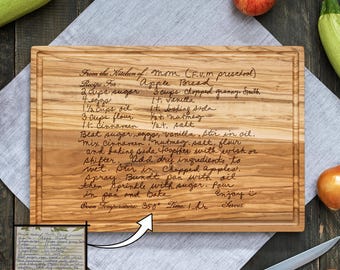 From the Kitchen of Mom (F.U.M preschool)
Recipe For Apple Bread
2 Cups sugar 3 cups chopped granny Smith
4 eggs 1 t. vanilla
1 ½ cups oil 1 t. baking soda
3 Cups flour ½ t. nutmeg
1 t. Cinnamon ½ t. salt
Beat sugar, eggs, vanilla. Stir in oil.
Mix Cinnamon, nutmeg, salt, flour
and baking soda together with whisk or
shifter. Add dry ingredients to
wet. Stir in chopped apples.
Spray Bundt pan with oil
then sprinkle with sugar. Pour
in Enjoy
Oven Temperature 350° Time 1 hr Serves